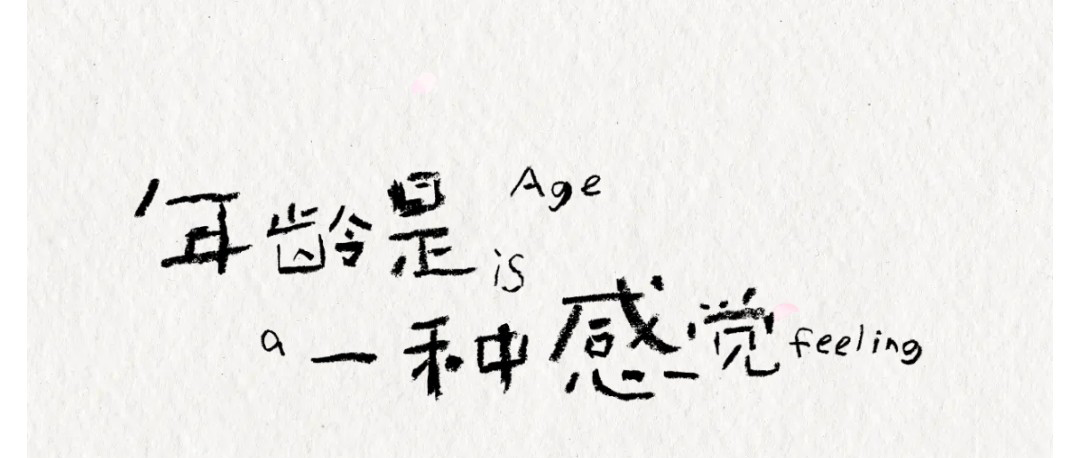 年龄是 Age
is
a 一种感觉 feeling